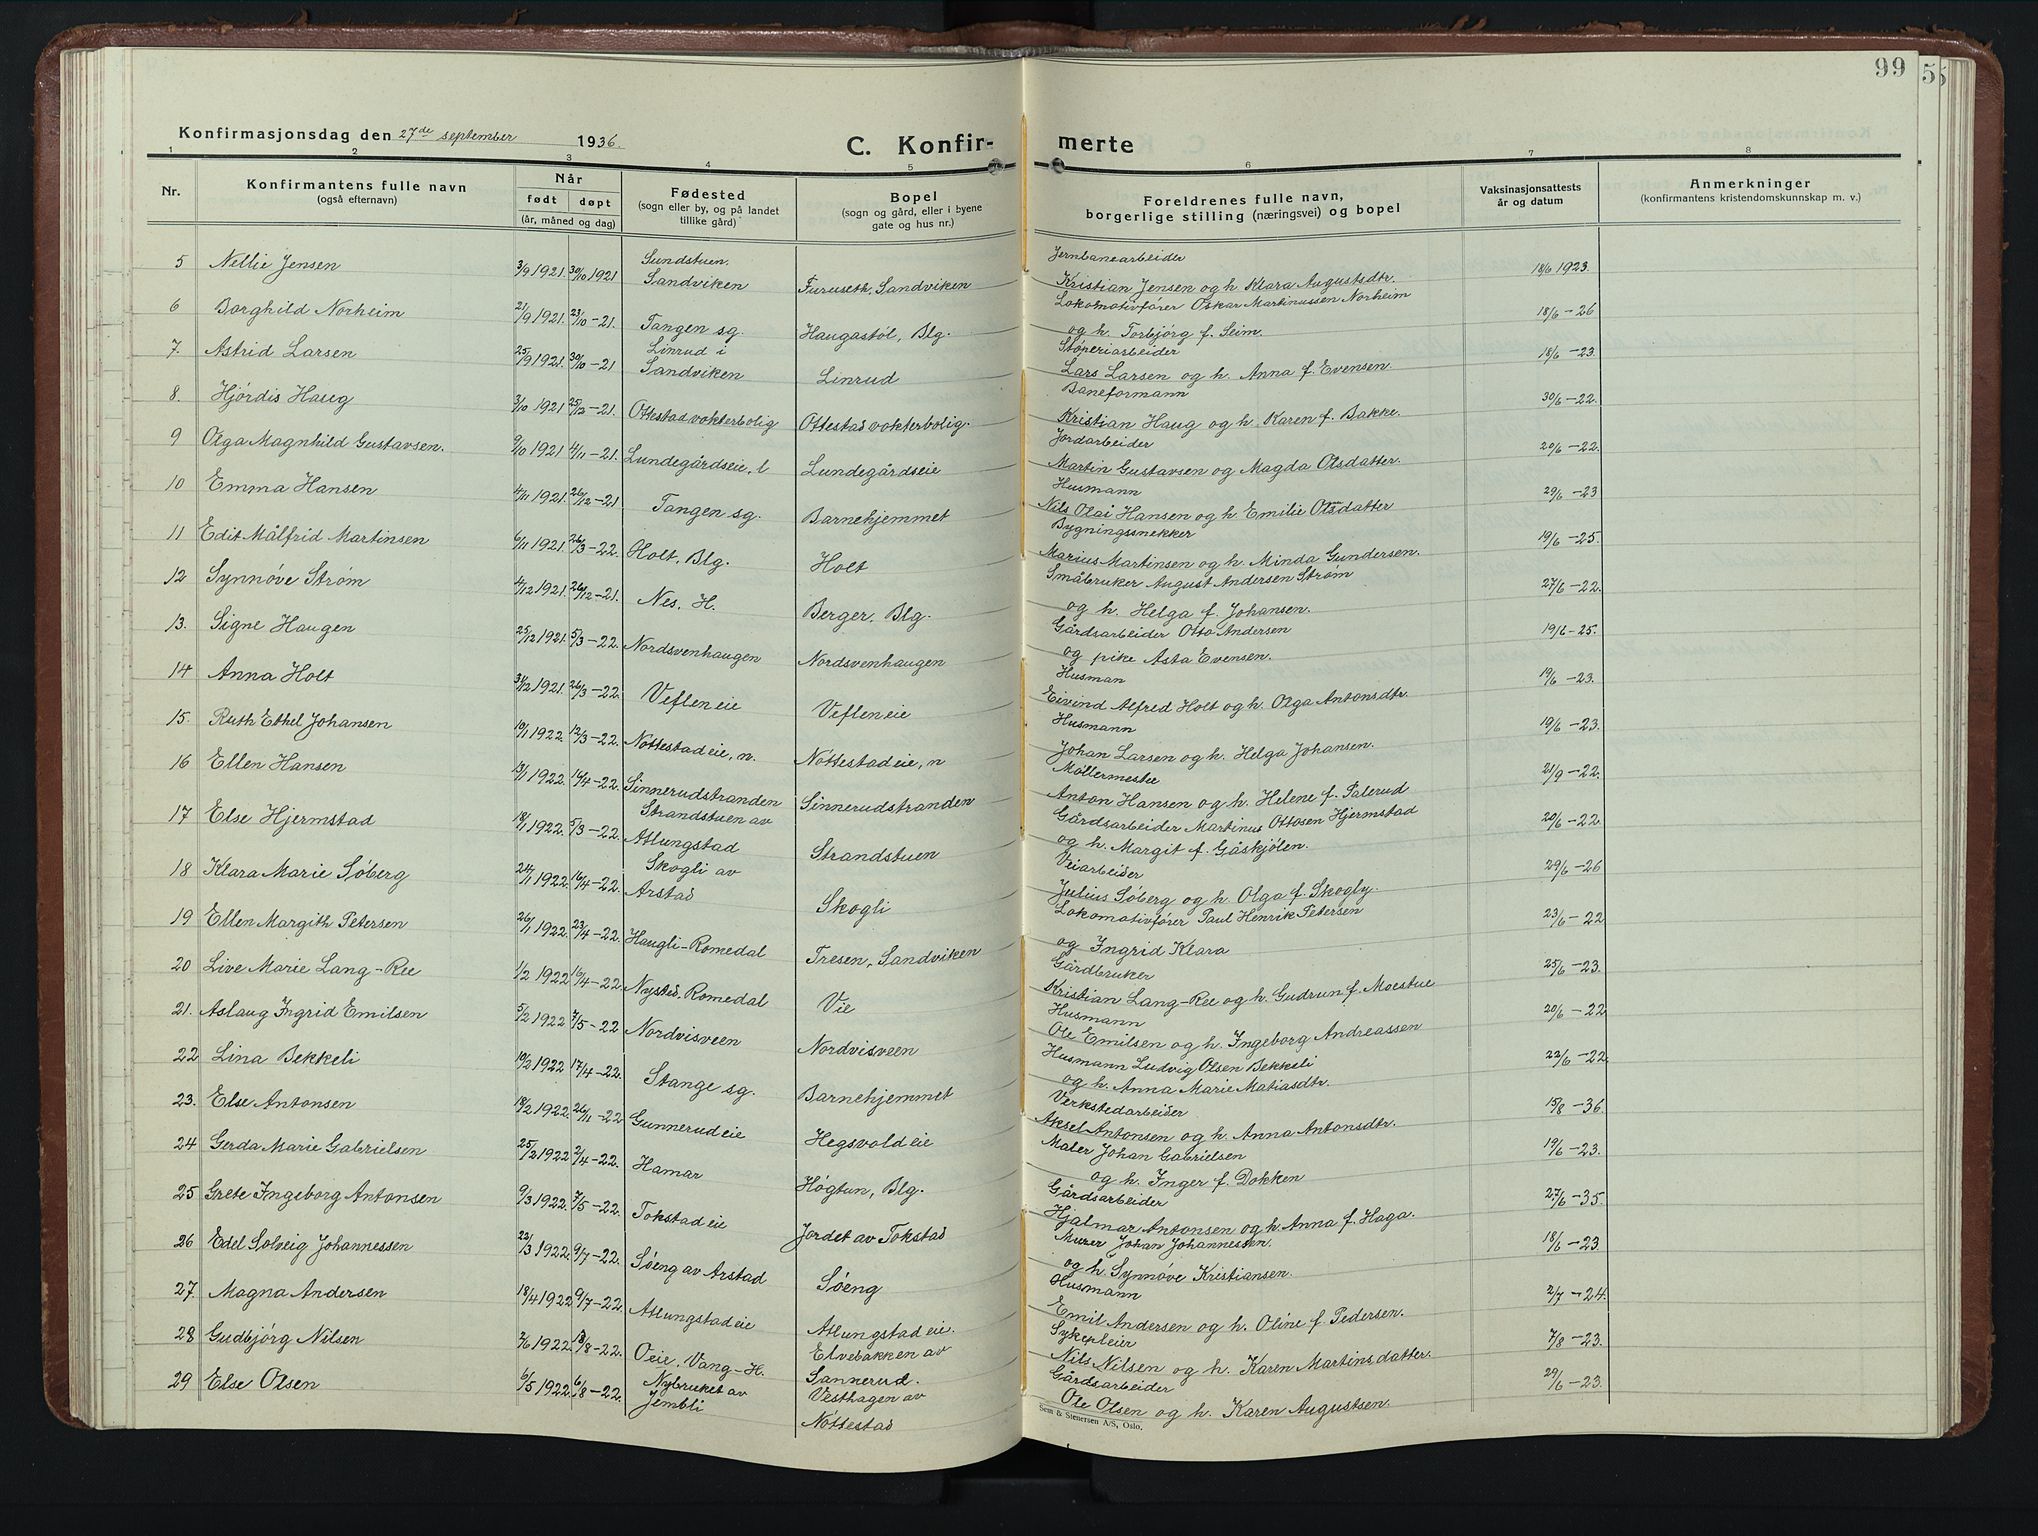 99
5
Konfirmasjonsdag den 27de september 1936.
C. Konfir-
merte
1 2 3 4 5 6 7 8
Nr.
Konfirmantens fulle navn
(også efternavn)
Når
født døpt
(år, måned og dag)
Fødested
(sogn eller by, og på landet
tillike gård)
Bopel
(sogn og gård, eller i byene
gate og hus nr.)
Foreldrenes fulle navn,
borgerlige stilling (næringsvei) og bopel
Vaksinasjonsattests
år og datum
Anmerkninger
(konfirmantens kristendomskunnskap m. v.)
5 Nellie Jensen 3/9 1921. 30/10 1921 Sundstuen. Sandviken Furuseth, Sandviken Jernbanearbeider Kristian Jensen og h. Klara Augustsdtr. 18/6 1923.
6 Borghild Norheim 21/9 1921. 23/10-21. Tangen sg. Haugastøl, Blg. Lokomotivfører Oskar Martinussen Norheim og h. Torbjørg f. Seim. 18/6-26
7. Astrid Larsen 25/9 1921. 30/10-21 Linrud i Sandviken Linrud Støperiarbeider Lars Larsen og h. Anna f. Evensen. 18/6-23.
8. Hjørdis Haug 3/10 1921 25/12-21. Ottestad vokterbolig Ottestad vokterbolig. Baneformann Kristian Haug og h. Karen f. Bakke. 30/6-22.
9 Olga Magnhild Gustavsen. 9/10 1921 4/11-21. Lundegårdseie, l Lundegårdseie Jordarbeider Martin Gustavsen og Magda Olsdatter. 20/6-22.
10 Emma Hansen 4/11 1921. 26/12-21 Tangen sg. Barnehjemmet Husmann Nils Olai Hansen og h. Emilie Olsdatter 29/6-23
11 Edit Målfrid Martinsen 6/11 1921. 26/3-22. Holt, Blg. Holt Bygningssnekker Marius Martinsen og h. Minda Gundersen. 19/6-25.
12 Synnøve Strøm 4/12 1921. 26/12-21. Nes, H. Berger, Blg. Småbruker August Andersen Strøm og h. Helga f. Johansen. 27/6-22.
13. Signe Haugen 25/12 1921. 5/3-22. Nordsvenhaugen Nordsvenhaugen Gårdsarbeider Otto Andersen og pike Asta Evensen. 19/6-25.
14 Anna Holt 31/12 1921. 26/3-22. Vefleneie Vefleneie Husman Eivind Alfred Holt og h. Olga Antonsdtr. 19/6-23.
15. Ruth Ethel Johansen 10/1 1922. 12/3-22. Nøttestadeie, n. Nøttestadeie, n Husmann Johan Larsen og h. Helga Johansen. 19/6-23.
16 Ellen Hansen 13/1 1922. 16/4-22. Sinnerudstranden Sinnerudstranden Møllermester Anton Hansen og h. Helene f. Palerud 21/9-22.
17 Else Hjermstad 18/1 1922. 5/3-22. Strandstuen av Atlungstad Strandstuen Gårdsarbeider Martinus Ottosen Hjermstad og h. Margit f. Gåskjølen. 20/6-22
18 Klara Marie Søberg 24/1 1922. 16/4-22. Skogli av Arstad Skogli Veiarbeider Julius Søberg og h. Olga f. Skogly. 29/6-26
19 Ellen Margith Petersen 26/1 1922. 23/4-22. Haugli-Romedal Tresen, Sandviken Lokomotivfører Paul Henrik Petersen og Ingrid Klara 23/6-22
20 Live Marie Lang-Ree 1/2 1922 16/4-22 Nysted, Romedal Vie Gårdbruker Kristian Lang-Ree og h. Gudrun f. Moestue 25/6-23.
21. Aslaug Ingrid Emilsen 5/2 1922 7/5-22 Nordvisveen Nordvisveen Husmann Ole Emilsen og h. Ingeborg Andreassen 20/6-22
22 Lina Bekkeli 10/2 1922 17/4-22. Stange sg. Barnehjemmet Husmann Ludvig Olsen Bekkeli og h. Anna Marie Matiasdtr. 22/6-22.
23. Else Antonsen 18/2 1922. 26/11-22 Gunnerudeie Hegsvoldeie Verkstedarbeider Aksel Antonsen og h. Anna Antonsdtr. 15/8-36.
24 Gerda Marie Gabrielsen 25/2 1922 2/4-22. Hamar Høgtun, Blg. Maler Johan Gabrielsen og h. Inger f. Dokken 19/6-23.
25 Grete Ingeborg Antonsen 9/3 1922. 7/5-22. Tokstadeie Jordet av Tokstad Gårdsarbeider Hjalmar Antonsen og h. Anna f. Haga. 27/6-35.
26 Edel Solveig Johannessen 22/3 1922. 9/7-22. Søeng av Arstad Søeng Murer Johan Johannessen. og h. Synnøve Kristiansen. 18/6-23.
27. Magna Andersen 18/4 1922 9/7-22. Atlungstadeie Atlungstadeie. Husmann Emil Andersen og h. Oline f. Pedersen. 2/7-24.
28 Gudbjørg Nilsen 2/6 1922. 13/8-22. Oeie, Vang-H. Elvebakken av Sannerud. Sykepleier Nils Nilsen og h. Karen Martinsdatter. 7/8-23.
29 Else Olsen 6/5 1922. 6/8-22. Nybruket av Jembli Vesthagen av Nøttestad Gårdsarbeider Ole Olsen og h. Karen Augustsen. 29/6-23.
Sem & Stenersen A/S, Oslo.